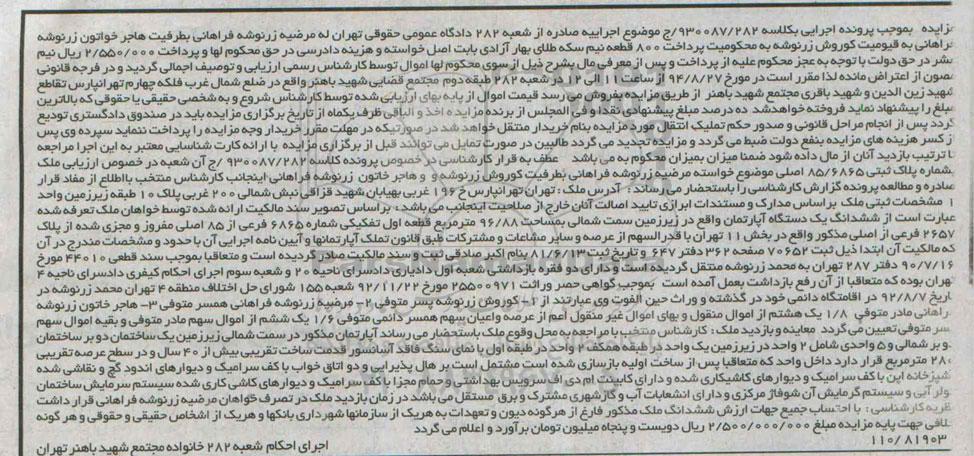 مزایده    بموجب پرونده اجرایی بکلاسه ۹۳۰۰۸۷/۲۸۲/ج موضوع اجراییه صادره از شعبه ۲۸۲ دادگاه عمومی حقوقی تهران له مرضیه زرنوشه فراهانی بطرفیت هاجر خواتون زرنوشه
فراهانی به قیومیت کوروش زرنوشه به محکومیت پرداخت ۸۰۰ قطعه نیم سکه طلای بهار آزادی بابت اصل خواسته و هزینه دادرسی در حق محکوم لها و پرداخت ۲/۵۵۰/۰۰۰ ریال نیم
عشر در حق دولت با توجه به عجز محکوم علیه از پرداخت و پس از معرفی مال بشرح ذیل از سوی محکوم لها اموال توسط کارشناس رسمی ارزیابی و توصیف اجمالی گردید و در فرجه قانونی
مصون از اعتراض مانده لذا مقرر است در مورخ ۹۴/۸/۲۷ از ساعت ۱۱ الی ۱۲ در شعبه ۲۸۲ طبقه دوم مجتمع قضایی شهید باهنر واقع در ضلع شمال غرب فلکه چهارم تهرانپارس تقاطع
شهید زین الدین و شهید باقری مجتمع شهید باهنر از طریق مزایده بفروش می رسد قیمت اموال از پایه بهای ارزیابی شده توسط کارشناس شروع و به شخصی حقیقی یا حقوقی که بالاترین
مبلغ را پیشنهاد نماید فروخته خواهد شد ده درصد مبلغ پیشنهادی نقدا و فی المجلس از برنده مزایده اخذ و الباقی ظرف یکماه از تاریخ برگزاری مزایده باید در صندوق دادگستری تودیع
گردد پس از انجام مراحل قانونی و صدور حکم تملیک انتقال مورد مزایده بنام خریدار منتقل خواهد شد در صورتیکه در مهلت مقرر خریدار وجه مزایده را پرداخت ننماید سپرده وی پس
از کسر هزینه های مزایده بنفع دولت ضبط می گردد و مزایده تجدید می گردد طالبین در صورت تمایل می توانند قبل از برگزاری مزایده با ارائه کارت شناسایی معتبر به این اجرا مراجعه
تا ترتیب بازدید آنان از مال داده شود ضمنا میزان بمیزان محکوم به می باشد    عطف به قرار کارشناسی در خصوص پرونده کلاسه ۹۳۰۰۸۷/۲۸۲/ج آن شعبه در خصوص ارزیابی ملک
بشماره پلاک ثبتی ۸۵/۶۸۶۵ اصلی موضوع خواسته مرضیه زرنوشه فراهانی بطرفیت کوروش زرنوشه و و هاجر خاتون زرنوشه فراهانی اینجانب کارشناس منتخب با اطلاع از مفاد قرار
صادره و مطالعه پرونده گزارش کارشناسی را باستحضار می رساند: آدرس ملک: تهران تهرانپارس خ ۱۹۶ غربی بهیابان شهید قزاقی نبش شمالی ۲۰۰ غربی پلاک ۱۰ طبقه زیرزمین واحد
۱ مشخصات ثبتی ملک براساس مدارک و مستندات ابرازی تایید اصالت آنان خارج از صلاحیت اینجانب می باشد. براساس تصویر سند مالکیت ارائه شده توسط خواهان ملک تعرفه شده
عبارت است از ششدانگ یک دستگاه آپارتمان واقع در زیرزمین سمت شمالی بمساحت ۹۶/۸۸ مترمربع قطعه اول تفکیکی شماره ۶۸۶۵ فرعی از ۸۵ اصلی مفروز و مجزی شده از پلاک
۲۶۵۷ فرعی از اصلی مذکور واقع در بخش ۱۱ تهران با قدر السهم از عرصه و سایر مشاعات و مشترکات طبق قانون تملک آپارتمانها و آیین نامه اجرایی آن با حدود و مشخصات مندرج در آن
که مالکیت آن ابتدا ذیل ثبت ۷۰۶۵۲ صفحه ۳۶۲ دفتر ۶۴۷ و تاریخ ثبت ۸۱/۶/۱۳ بنام اکبر صادقی ثبت و سند مالکیت صادر گردیده است و متعاقبا بموجب سند قطعی ۴۴۰۱۰ مورخ
۹۰/۷/۱۶ دفتر ۲۸۷ تهران به محمد زرنوشه منتقل گردیده است و دارای دو فقره بازداشتی شعبه اول دادیاری دادسرای ناحیه ۲۰ و شعبه سوم اجرای احکام کیفری دادسرای ناحیه ۴
تهران بوده که متعاقبا از آن رفع بازداشت بعمل آمده است بموجب گواهی حصر وراثت ۲۵۵۰۰۹۷۱ مورخ ۹۲/۱۱/۲۲ شعبه ۱۵۵ شورای حل اختلاف منطقه ۴ تهران محمد زرنوشه در
تاریخ ۹۲/۸/۷ در اقامتگاه دائمی خود در گذشته و وراث حین الفوت وی عبارتند از ۱- کوروش زرنوشه پسر متوفی ۲- مرضیه زرنوشه فراهانی همسر متوفی ۳- هاجر خاتون زرنوشه
فراهانی مادر متوفی ۱/۸ یک هشتم از اموال منقول و بهای اموال غیر منقول اعم از عرصه واعیان سهم همسر دائمی متوفی ۱/۶ یک ششم از اموال سهم مادر متوفی و بقیه اموال سهم
پسر متوفی تعیین می گردد معاینه و بازدید ملک: کارشناس منتخب با مراجعه به محل وقوع ملک باستحضار می رساند آپارتمان مذکور در سمت شمالی زیرزمین یک ساختمان دو بر ساختمان
دو بر شمالی و ۵ واحدی شامل ۲ واحد در زیرزمین یک واحد در طبقه همکف ۲ واحد در طبقه اول با نمای سنگ فاقد آسانسور قدمت ساخت تقریبی بیش از ۴۰ سال و در سطح عرصه تقریبی
۲۸۰ مترمربع قرار دارد داخل واحد که متعاقبا پس از ساخت اولیه بازسازی شده است مشتمل است بر هال پذیرایی و دو اتاق خواب با کف سرامیک و دیوارهای اندود گچ و نقاشی شده
آشپزخانه اپن با کف سرامیک و دیوارهای کاشیکاری شده و دارای کابینت ام دی اف سرویس بهداشتی و حمام مجزا با کف سرامیک و دیوارهای کاشی کاری شده سیستم سرمایش ساختمان
کولر آبی و سیستم گرمایش آن شوفاژ مرکزی و دارای انشعابات آب و گاز شهری مشترک و برق مستقل می باشد در زمان بازدید ملک در تصرف خواهان مرضیه زرنوشه فراهانی قرار داشت
نظریه کارشناسی: با احتساب جمیع جهات ارزش ششدانگ ملک مذکور فارغ از هرگونه دیون و تعهدات به هریک از سازمانها شهرداری بانکها و هریک از اشخاص حقیقی و حقوقی و هرگونه
تلافی جهت پایه مزایده مبلغ ۲/۵۰۰/۰۰۰/۰۰۰ ریال دویست و پنجاه میلیون تومان برآورد و اعلام می گردد
۱۱۰/۸۱۹۰۳    اجرای احکام شعبه ۲۸۲ خانواده مجتمع شهید باهنر تهران